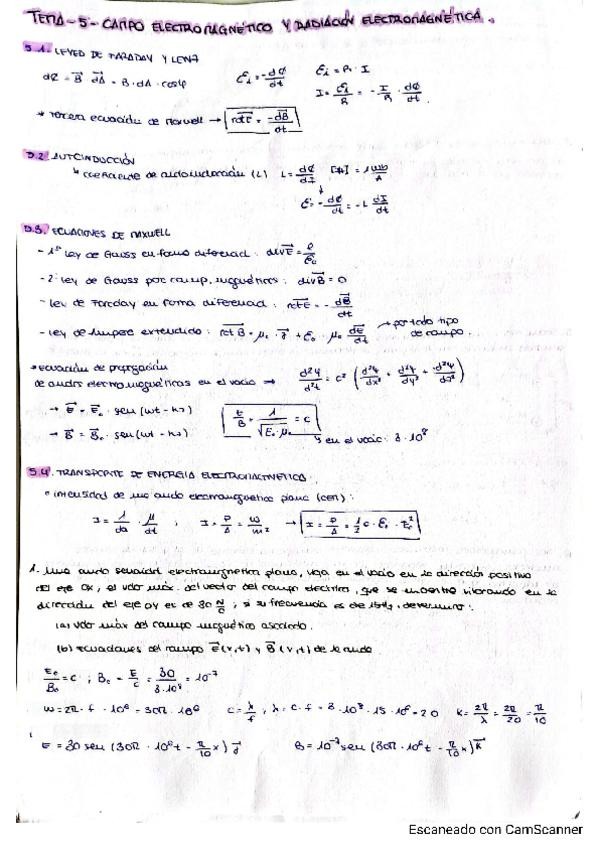 TEMA-5-CAMPO ELECTROMAGNÉTICO Y RADIACIÓN ELECTROMAGNÉTICA.
5.1. LEYES DE FARADAY Y LENZ
dØ = B⃗ · dA⃗ = B·dA·cosφ
εi = -dØ/dt
εi = R·I
I = εi/R = -1/R · dØ/dt
* Tercera ecuación de Maxwell → rot E = -dB⃗/dt
5.2 AUTOINDUCCIÓN
↳ coeficiente de autoinducción (L) L = dØ/dI
ε = -dØ/dt = -L dI/dt
5.3. ECUACIONES DE MAXWELL
- 1ª Ley de Gauss en forma diferencial: div E⃗ = ρ/ε₀
- 2ª Ley de Gauss por camp. magnéticos: div B⃗ = 0
- Ley de Faraday en forma diferencial: rot E = -dB⃗/dt
- Ley de Ampere extendido: rot B = μ₀ · J⃗ + ε₀ · μ₀ dE⃗/dt → por todo tipo de campo.
* Ecuación de propagación
de ondas electromagnéticas en el vacío →
→ E⃗ = E⃗₀ · sen(wt - kx)
E/B = 1/√(ε₀·μ₀) = c
→ B⃗ = B⃗₀ · sen(wt - kx)
↳ en el vacío: 3·10⁸
5.4. TRANSPORTE DE ENERGÍA ELECTROMAGNÉTICA.
* intensidad de una onda electromagnética plana
I = P/A = W/m² → I = P/A = 1/2 c · ε₀ · E₀²
1. Una onda senoidal electromagnética plana, viaja en el vacío en la dirección positiva
del eje OX, el valor máx. del vector del campo eléctrico, que se encuentra vibrando en la
dirección del eje OY es de 30 N/C, si su frecuencia es de determina:
(a) Valor máx del campo magnético asociado.
(b) Ecuaciones del campo E⃗(x,t) y B⃗(x,t) de la onda.
E₀/B₀ = c ; B₀ = E/c = 30/3·10⁸ = 10⁻⁷
K = 2π/λ = 2π/20 = π/10
E = 30 sen (30π · 10⁶t - π/10 x) j⃗
B = 10⁻⁷ sen (30π · 10⁶t - π/10 x) k⃗
Escaneado con CamScanner